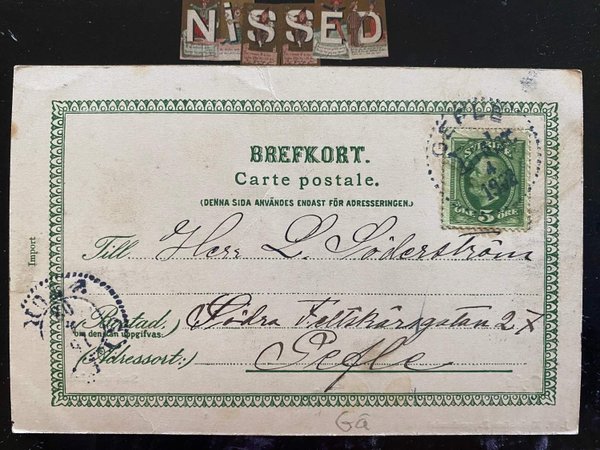 NiSSED
BREFKORT.
Carte postale.
(DENNA SIDA ANVÄNDES ENDAST FÖR ADRESSERINGEN.)
GEFLE
SVERIGE
5 ÖRE
Import
Till Herr L. Söderström
(Bostad, Södra Fältskärsgatan 27
om den kan uppgifvas:)
(Adressort:) Gefle
Gä